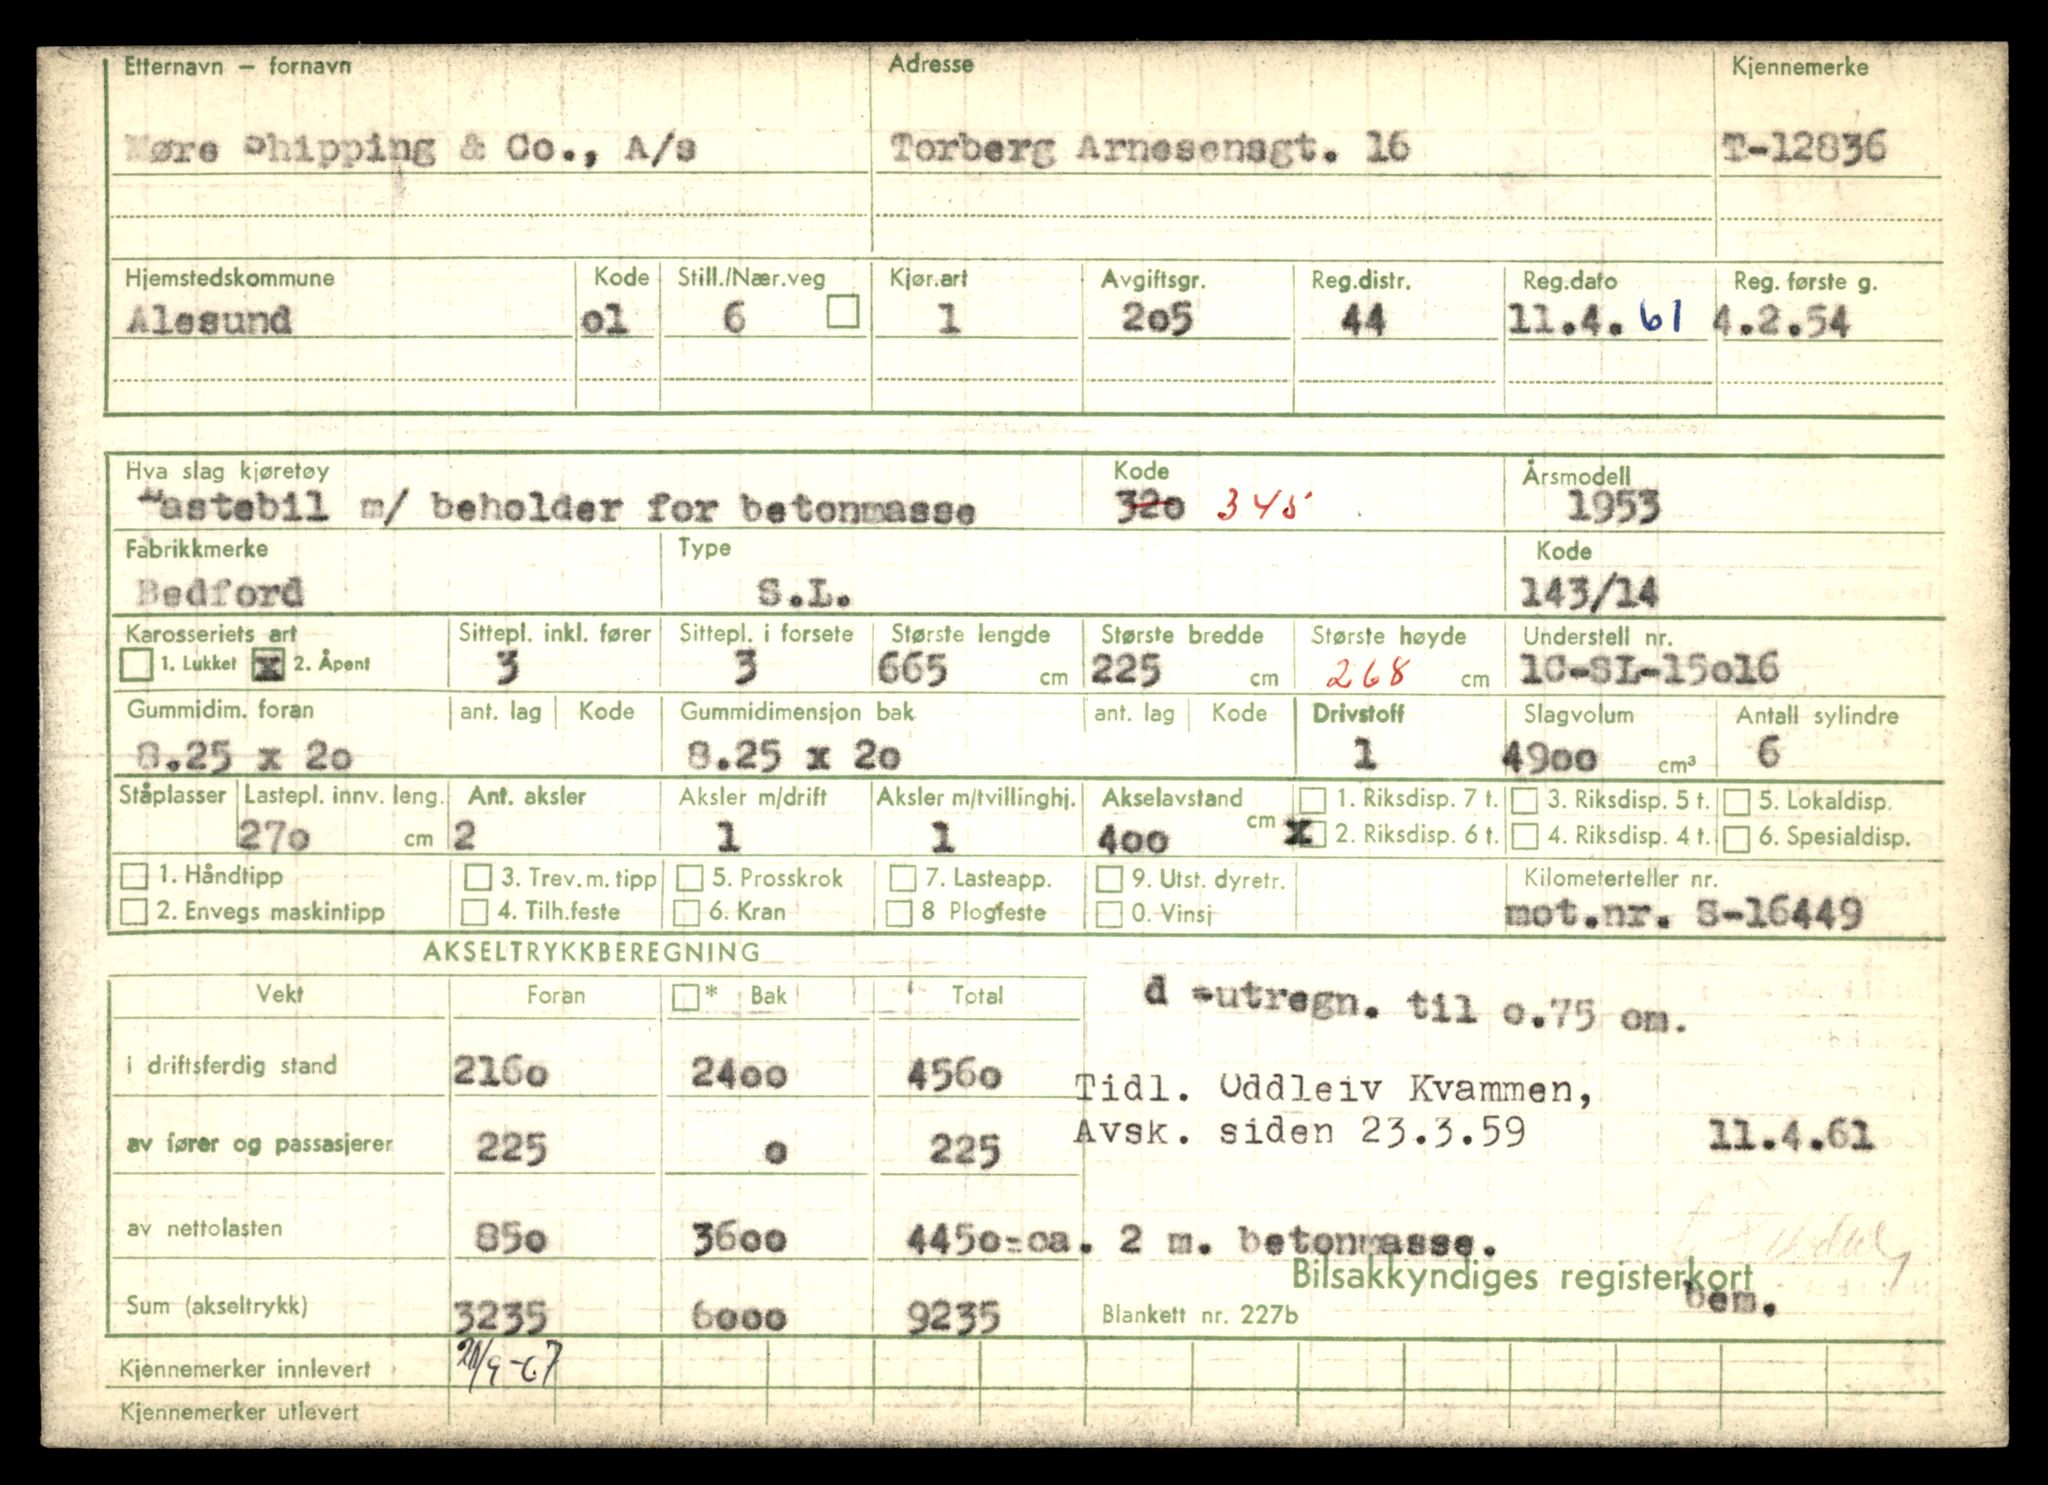 Etternavn — fornavn Adresse Kjennemerke
Møre Shipping & Co., A/s Torberg Arnesensgt. 16 T-12836
Hjemstedskommune Kode Still./Nær.veg Kjør.art Avgiftsgr. Reg.distr. Reg.dato Reg. første g.
Alesund o1 6 1 2o5 44 11.4. 61 4.2.54
Hva slag kjøretøy Kode Årsmodell
Lastebil m/ beholder for betonmasse 32o 345 1953
Fabrikkmerke Type Kode
Bedford S.L. 143/14
Karosseriets art Sittepl. inkl. fører Sittepl. i forsete Største lengde Største bredde Største høyde Understell nr.
1. Lukket x 2. Åpent 3 3 665 cm 225 cm 268 cm 1C-SL-15o16
Gummidim. foran ant. lag Kode Gummidimensjon bak ant. lag Kode Drivstoff Slagvolum Antall sylindre
8.25 x 2o 8.25 x 2o 1 49oo cm³ 6
Ståplasser Lastepl. innv. leng. Ant. aksler Aksler m/drift Aksler m/tvillinghj. Akselavstand 1. Riksdisp. 7 t. 3. Riksdisp. 5 t. 5. Lokaldisp.
27o cm 2 1 1 4oo cm x 2. Riksdisp. 6 t. 4. Riksdisp. 4 t. 6. Spesialdisp.
1. Håndtipp 3. Trev. m. tipp 5. Prosskrok 7. Lasteapp. 9. Utst. dyretr. Kilometerteller nr.
2. Envegs maskintipp 4. Tilh.feste 6. Kran 8 Plogfeste 0. Vinsj mot.nr. S-16449
AKSELTRYKKBEREGNING
Vekt Foran * Bak Total d =utregn. til o.75 om.
i driftsferdig stand 216o 24oo 456o Tidl. Oddleiv Kvammen,
av fører og passasjerer 225 o 225 Avsk. siden 23.3.59 11.4.61
av nettolasten 85o 36oo 445o=ca. 2 m. betonmasse.
Bilsakkyndiges registerkort
Sum (akseltrykk) 3235 6ooo 9235 Blankett nr. 227b bem.
Kjennemerker innlevert
Kjennemerker utlevert